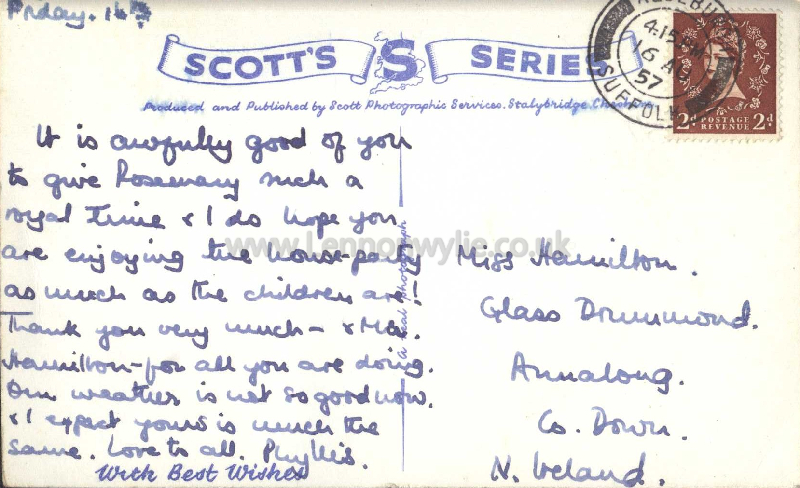 Friday. 16th
SCOTT'S S SERIES
Produced and Published by Scott Photographic Services, Stalybridge, Cheshire
4.15 PM
16 AU
57
SUFFOLK
2d POSTAGE REVENUE 2d
It is awfully good of you
to give Rosemary such a
royal time & I do hope you
are enjoying the house-party
as much as the children are!
Thank you very much – & Mrs.
Hamilton – for all you are doing.
Our weather is not so good now.
& I expect yours is much the
same. Love to all. Phyllis.
With Best Wishes
A Real Photograph
www.Lennonwylie.co.uk
Miss Hamilton.
Glass Drummond.
Annalong.
Co. Down.
N. Ireland.